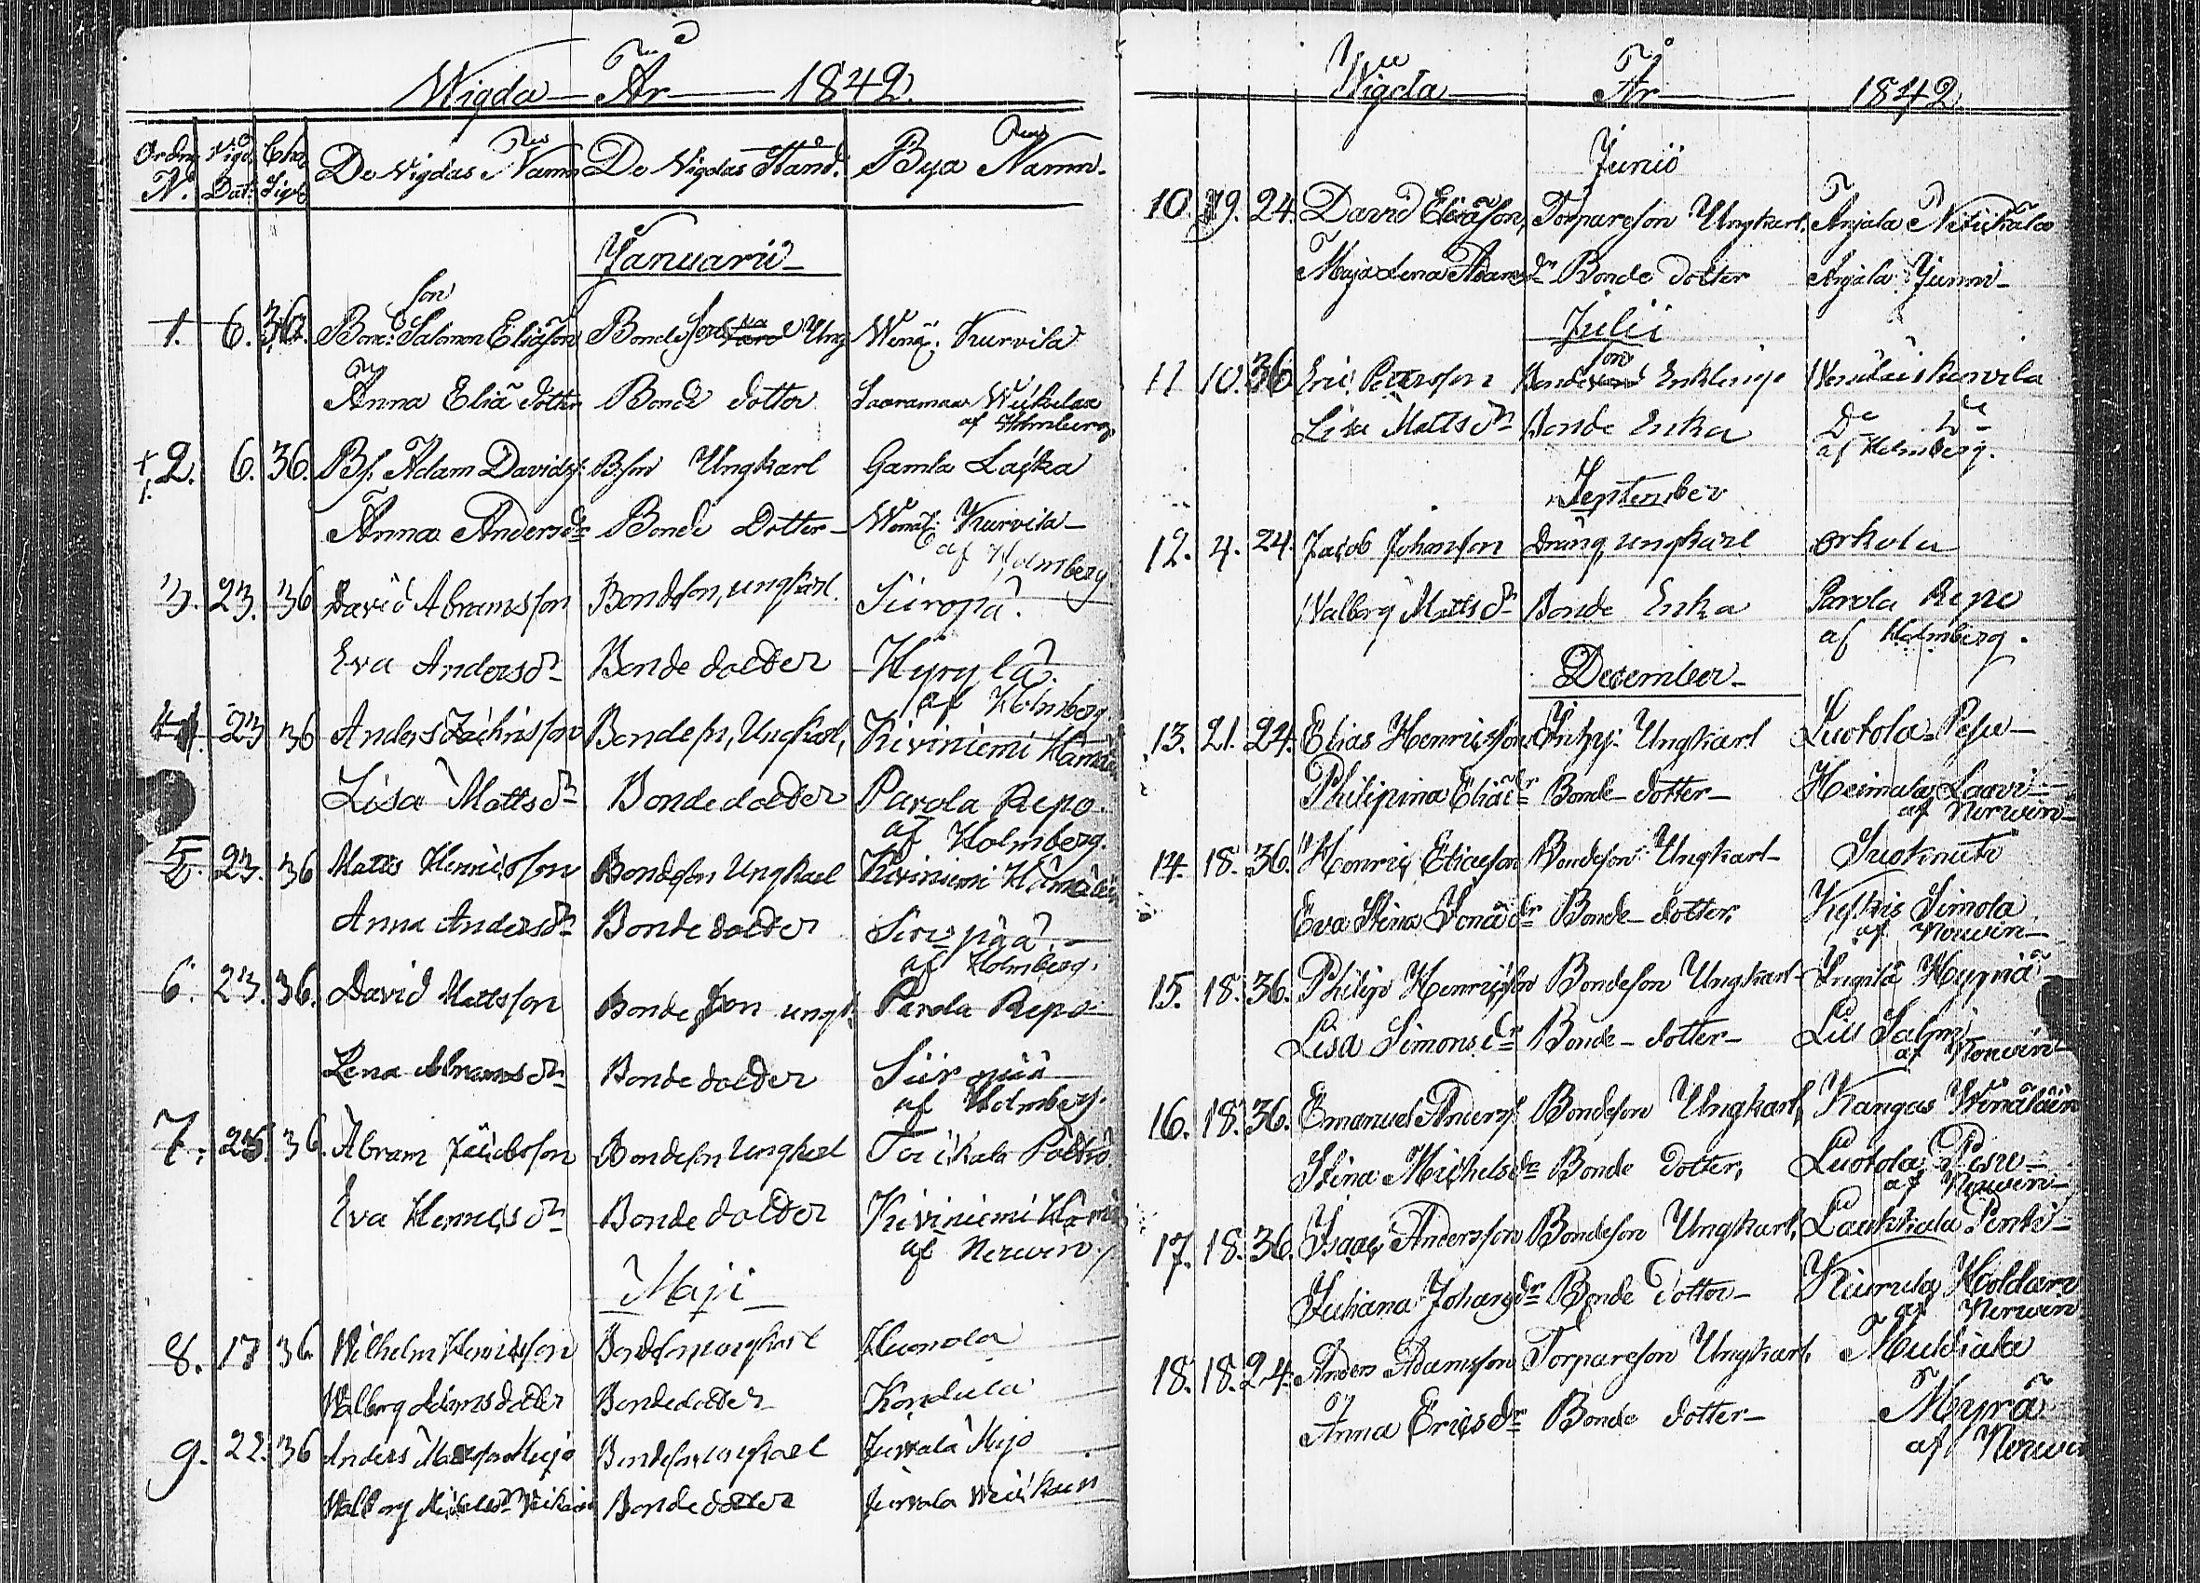 Wigda År 1842.
Ordn. Wigd. Char.
N:o Dat: Sigil.
De Wigdas Namn De Wigdas Stånd. Bya Namn.
Januarii
son
1. 6. 36. Bond: Salomon Eliæson Bonde son Ung Wenäj: Kurvila
Anna Eliæ dotter Bonde dotter Saaramaa
af Holmberg
2. 6. 36. Bs. Adam Davids: Bson Ungkarl Gamla
Anna Andersdr Bonde Dotter Wenäj: Kurvila
af Holmberg
3. 23. 36 David Abramsson Bondeson, ungkarl. Siiropä.
Eva Andersdr Bonde docter Hyrylä.
af Holmberg.
4. 23 36 Anders Bondeson, Ungkarl, Kiviniemi
Lisa Mattsdr Bonde docter Parola Repo.
af Holmberg.
5. 23. 36 Matts Henricsson Bondeson Ungkarl Kiviniemi
Anna Andersdr Bonde docter Siirpää
af Holmberg.
6. 23. 36. David Mattsson Bonde son ungk. Parola Repo
Lena Abramsdr Bonde docter Siirpää
af Holmberg.
7. 25. 36. Abram Jacobsson Bondeson Ungkarl
Eva Henricsdr Bonde docter Kiviniemi
af Nerwen.
Maji
8. 17 36 Wilhelm Henricsson Bondeson ungkarl Huonola
Walborg Adamsdocter Bondedocter Kondula
9. 22. 36 Anders Mujo Bondeson ungkarl Jurvala Mujo
Walborg Bondedocter Jurvala
Wigda År 1842
Junii
10. 19. 24. David Eliæson, Torpareson Ungkarl. Anjala
Maja Lena Adamsdr Bonde dotter Anjala Junni
Julii
son
11 10. 36 Eric Petersson Bonde Enkling Wenäläis Kurvila
Lisa Mattsdr Bonde Enka Do Do
af Holmberg.
September
12. 4. 24. Jacob Johansson Dräng, ungkarl Orkola
Walborg Mattsdr Bonde Enka Parola Repo
af Holmberg.
December
13. 21. 24. Elias Henricsson Inhys: Ungkarl Luotola Pesu
Philipina Eliædr Bonde dotter Heimala Laari
af Nerwen
14. 18. 36. Henric Eliæson Bondeson Ungkarl Suoknuti
Eva Stina Jonædr Bonde dotter. Simola
af Nerwen
15. 18. 36. Philip Henricson Bondeson Ungkarl
Lisa Simonsdr Bonde dotter
af Nerwen
16. 18. 36. Emanuel Anders Bondeson Ungkarl, Kangas
Stina Michelsdr Bonde dotter, Luotola Pesu
af Nerwen
17. 18. 36. Isaac Andersson Bondeson Ungkarl, Laukkala Pentti
Juliana Johansdr Bonde dotter Kiurula
af Nerwen
18. 18. 24. Anders Adamsson Torpareson Ungkarl,
Anna Ericsdr Bonde dotter Myrä
af Nerwen